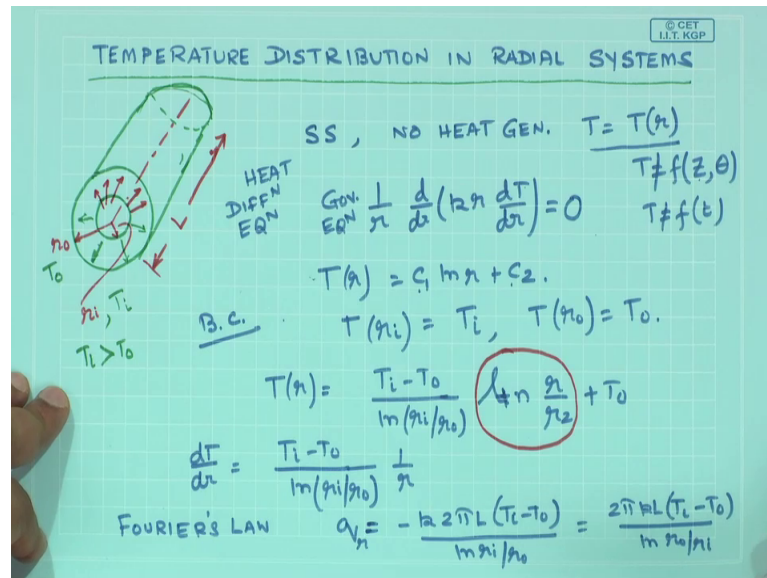 © CET
I.I.T. KGP
TEMPERATURE DISTRIBUTION IN RADIAL SYSTEMS
SS, NO HEAT GEN. T = T(r)
T ≠ f(z, θ)
T ≠ f(t)
HEAT
DIFFN
EQN
Gov. EQN 1/r d/dr (kr dT/dr) = 0
L
ro
To
ri, Ti
Ti > To
T(r) = C1 ln r + C2.
B.C. T(ri) = Ti, T(ro) = To.
T(r) = (Ti - To)/ln(ri/ro) ln r/r2 + To
dT/dr = (Ti - To)/ln(ri/ro) 1/r
FOURIER'S LAW qr = - k 2πL (Ti - To)/ln ri/ro = 2πkL (Ti - To)/ln ro/ri